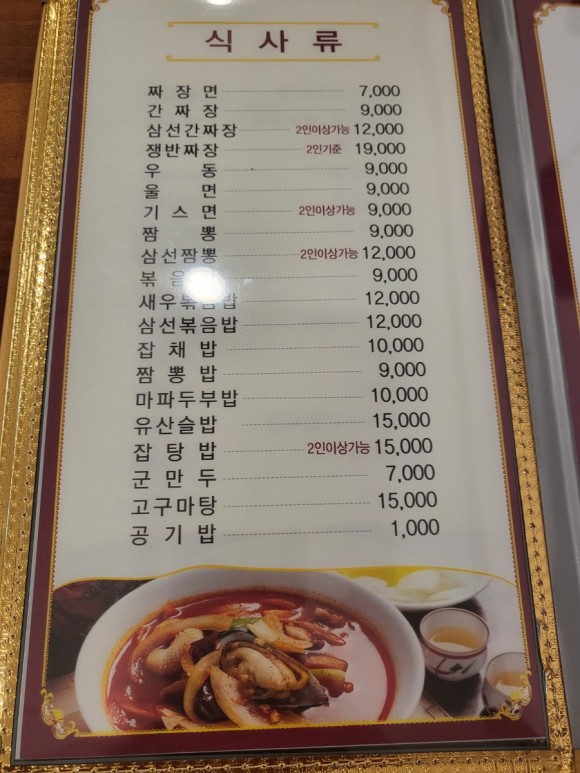 식사류
짜장면 7,000
간짜장 9,000
삼선간짜장 2인이상가능 12,000
쟁반짜장 2인기준 19,000
우동 9,000
울면 9,000
기스면 2인이상가능 9,000
짬뽕 9,000
삼선짬뽕 2인이상가능 12,000
9,000
새우볶음밥 12,000
삼선볶음밥 12,000
잡채밥 10,000
짬뽕밥 9,000
마파두부밥 10,000
유산슬밥 15,000
잡탕밥 2인이상가능 15,000
군만두 7,000
고구마탕 15,000
공기밥 1,000